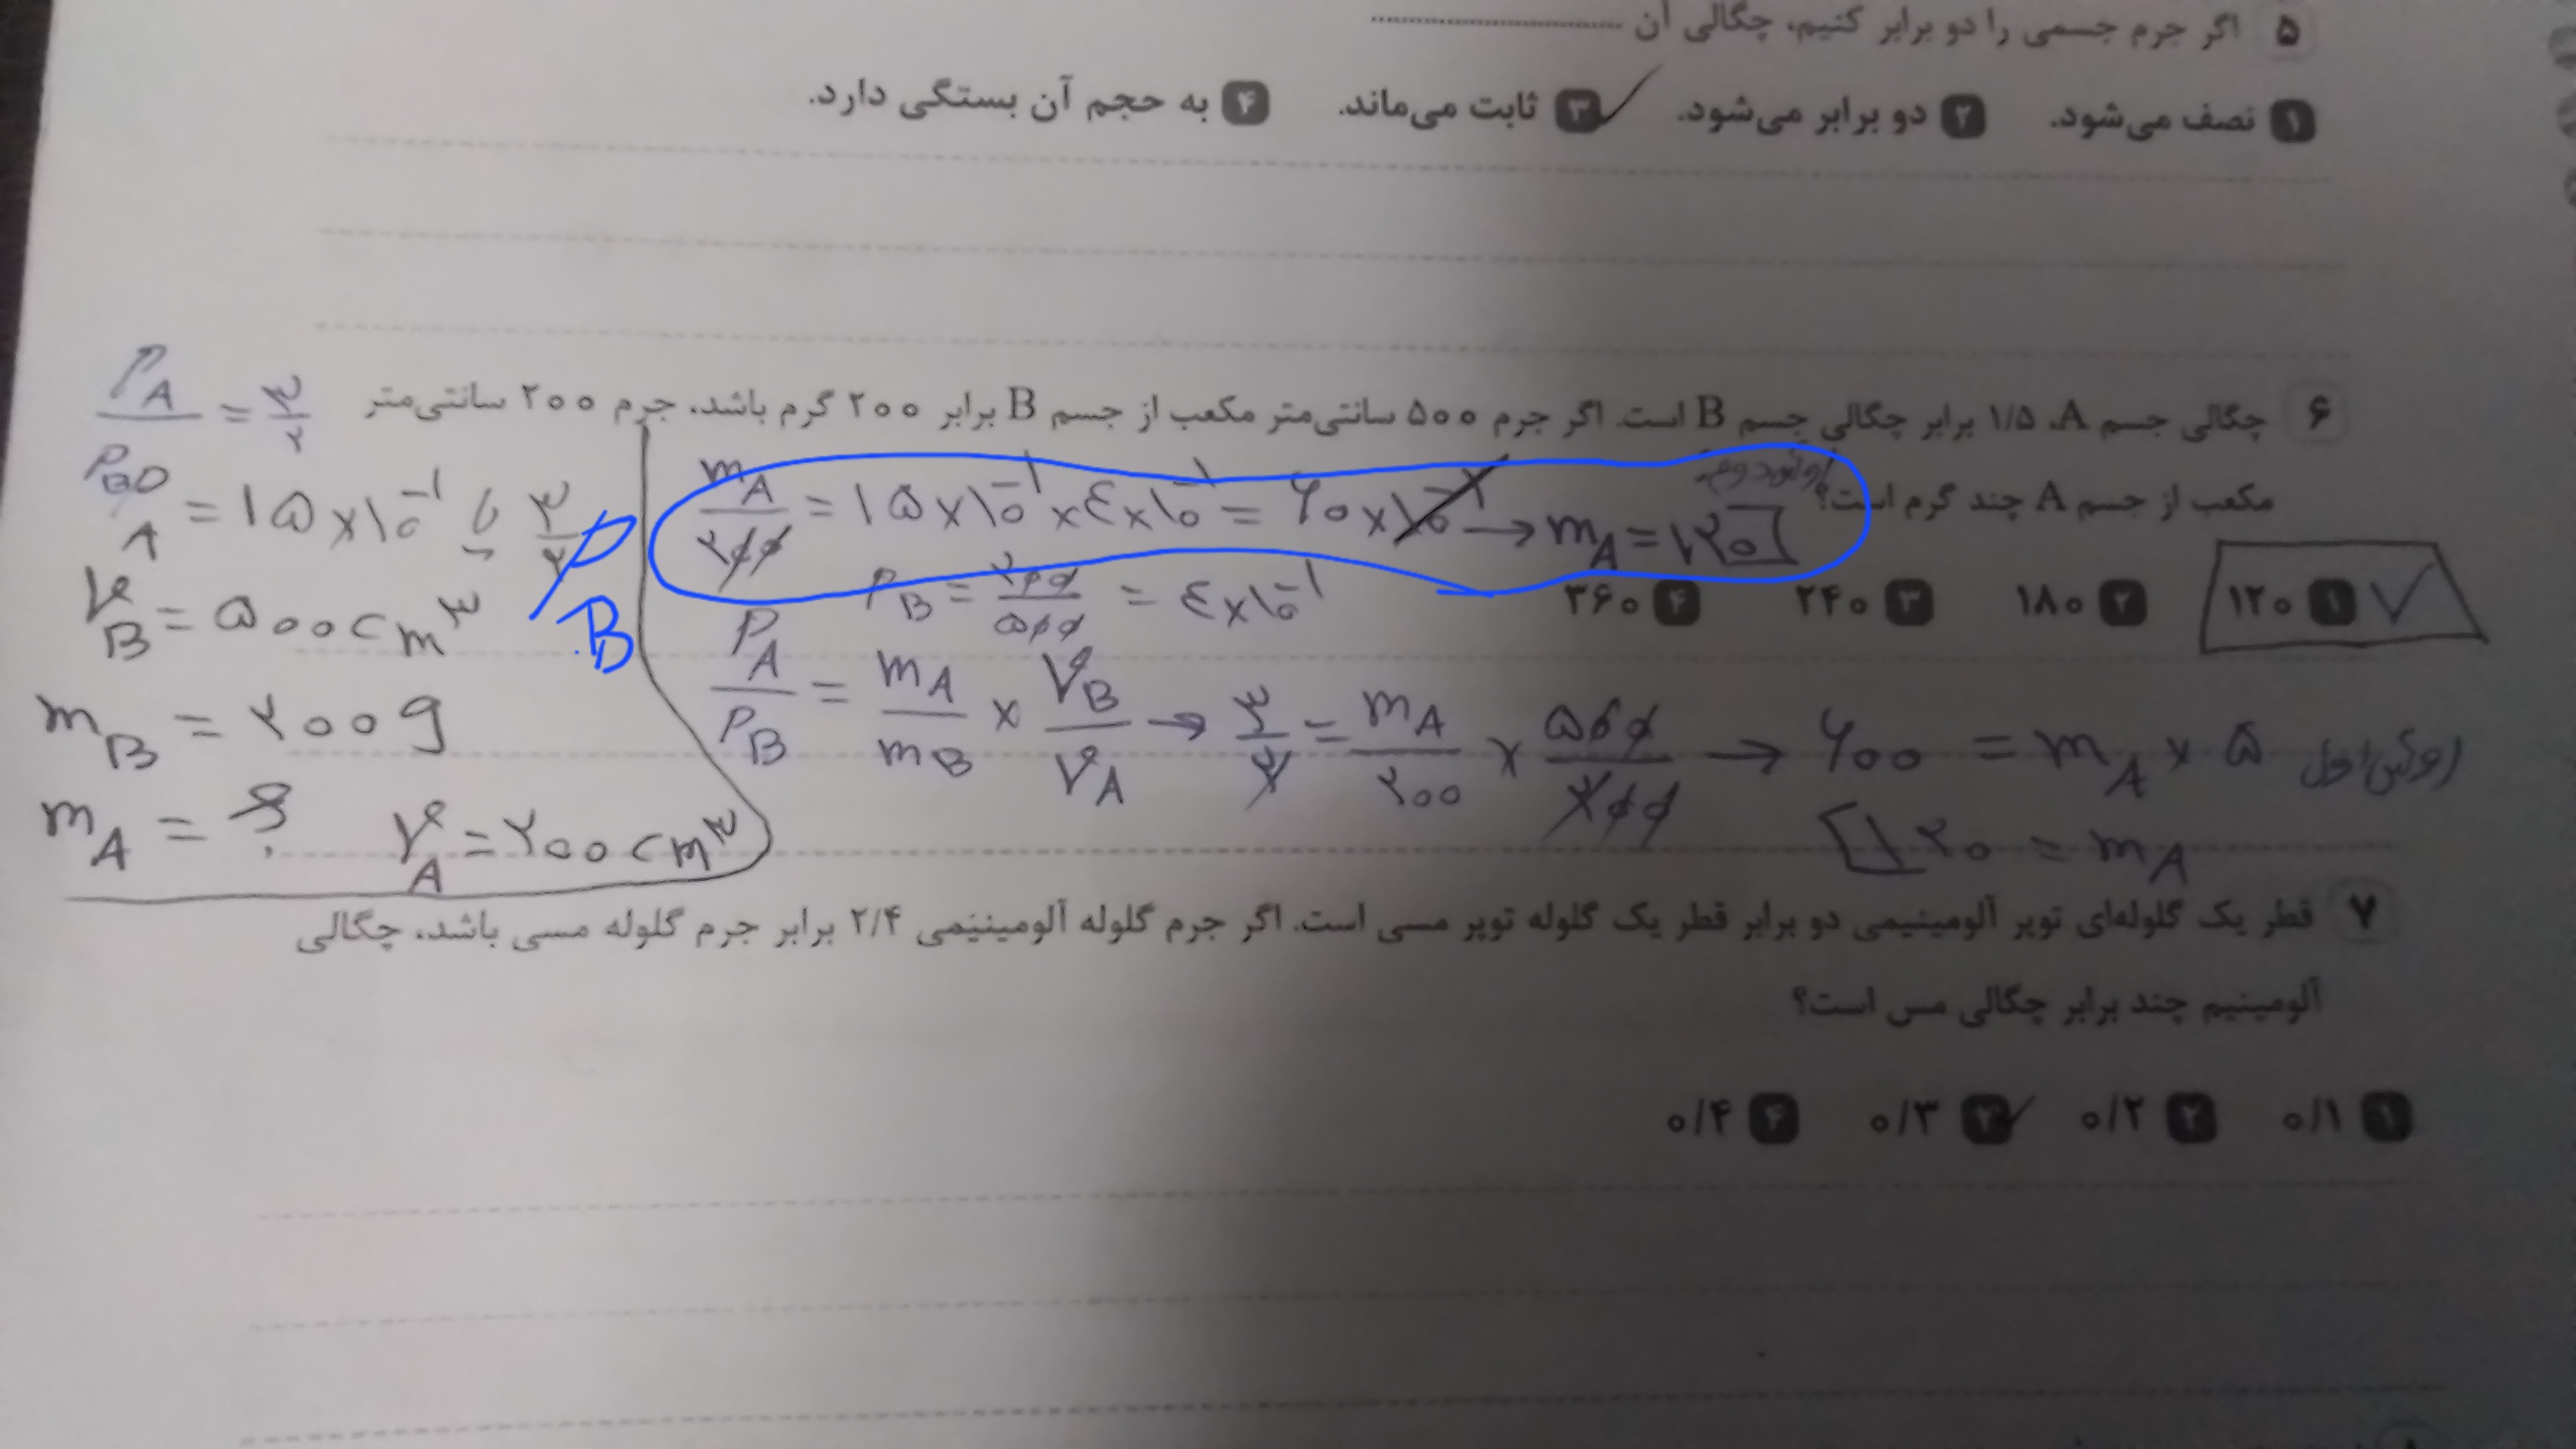 ۵ اگر جرم جسمی را دو برابر کنیم، چگالی آن ..............................
۱ نصف می‌شود. ۲ دو برابر می‌شود. ۳ ثابت می‌ماند. ۴ به حجم آن بستگی دارد.
۶ چگالی جسم A، ۱/۵ برابر چگالی جسم B است. اگر جرم ۵۰۰ سانتی‌متر مکعب از جسم B برابر ۲۰۰ گرم باشد، جرم ۲۰۰ سانتی‌متر
مکعب از جسم A چند گرم است؟
روش دوم
m_A/۲۰۰ = ۱۵×۱۰^-۱ × ۴×۱۰^-۱ = ۶۰×۱۰^-۲ → m_A = ۱۲۰
ρ_B = ۲۰۰/۵۰۰ = ۴×۱۰^-۱
۱ ۱۲۰ ✓ ۲ ۱۸۰ ۳ ۲۴۰ ۴ ۳۶۰
ρ_A/ρ_B = m_A/m_B × V_B/V_A → ۳/۲ = m_A/۲۰۰ × ۵۰۰/۲۰۰ → ۶۰۰ = m_A × ۵ روش اول
۱۲۰ = m_A
ρ_A/ρ_B = ۳/۲
ρ_A = ۱۵×۱۰^-۱ یا ۳/۲ ρ_B
V_B = ۵۰۰ cm^۳
m_B = ۲۰۰ g
m_A = ؟ V_A = ۲۰۰ cm^۳
۷ قطر یک گلوله‌ای توپر آلومینیمی دو برابر قطر یک گلوله توپر مسی است. اگر جرم گلوله آلومینیمی ۲/۴ برابر جرم گلوله مسی باشد، چگالی
آلومینیم چند برابر چگالی مس است؟
۱ ۰/۱ ۲ ۰/۲ ۳ ۰/۳ ۴ ۰/۴